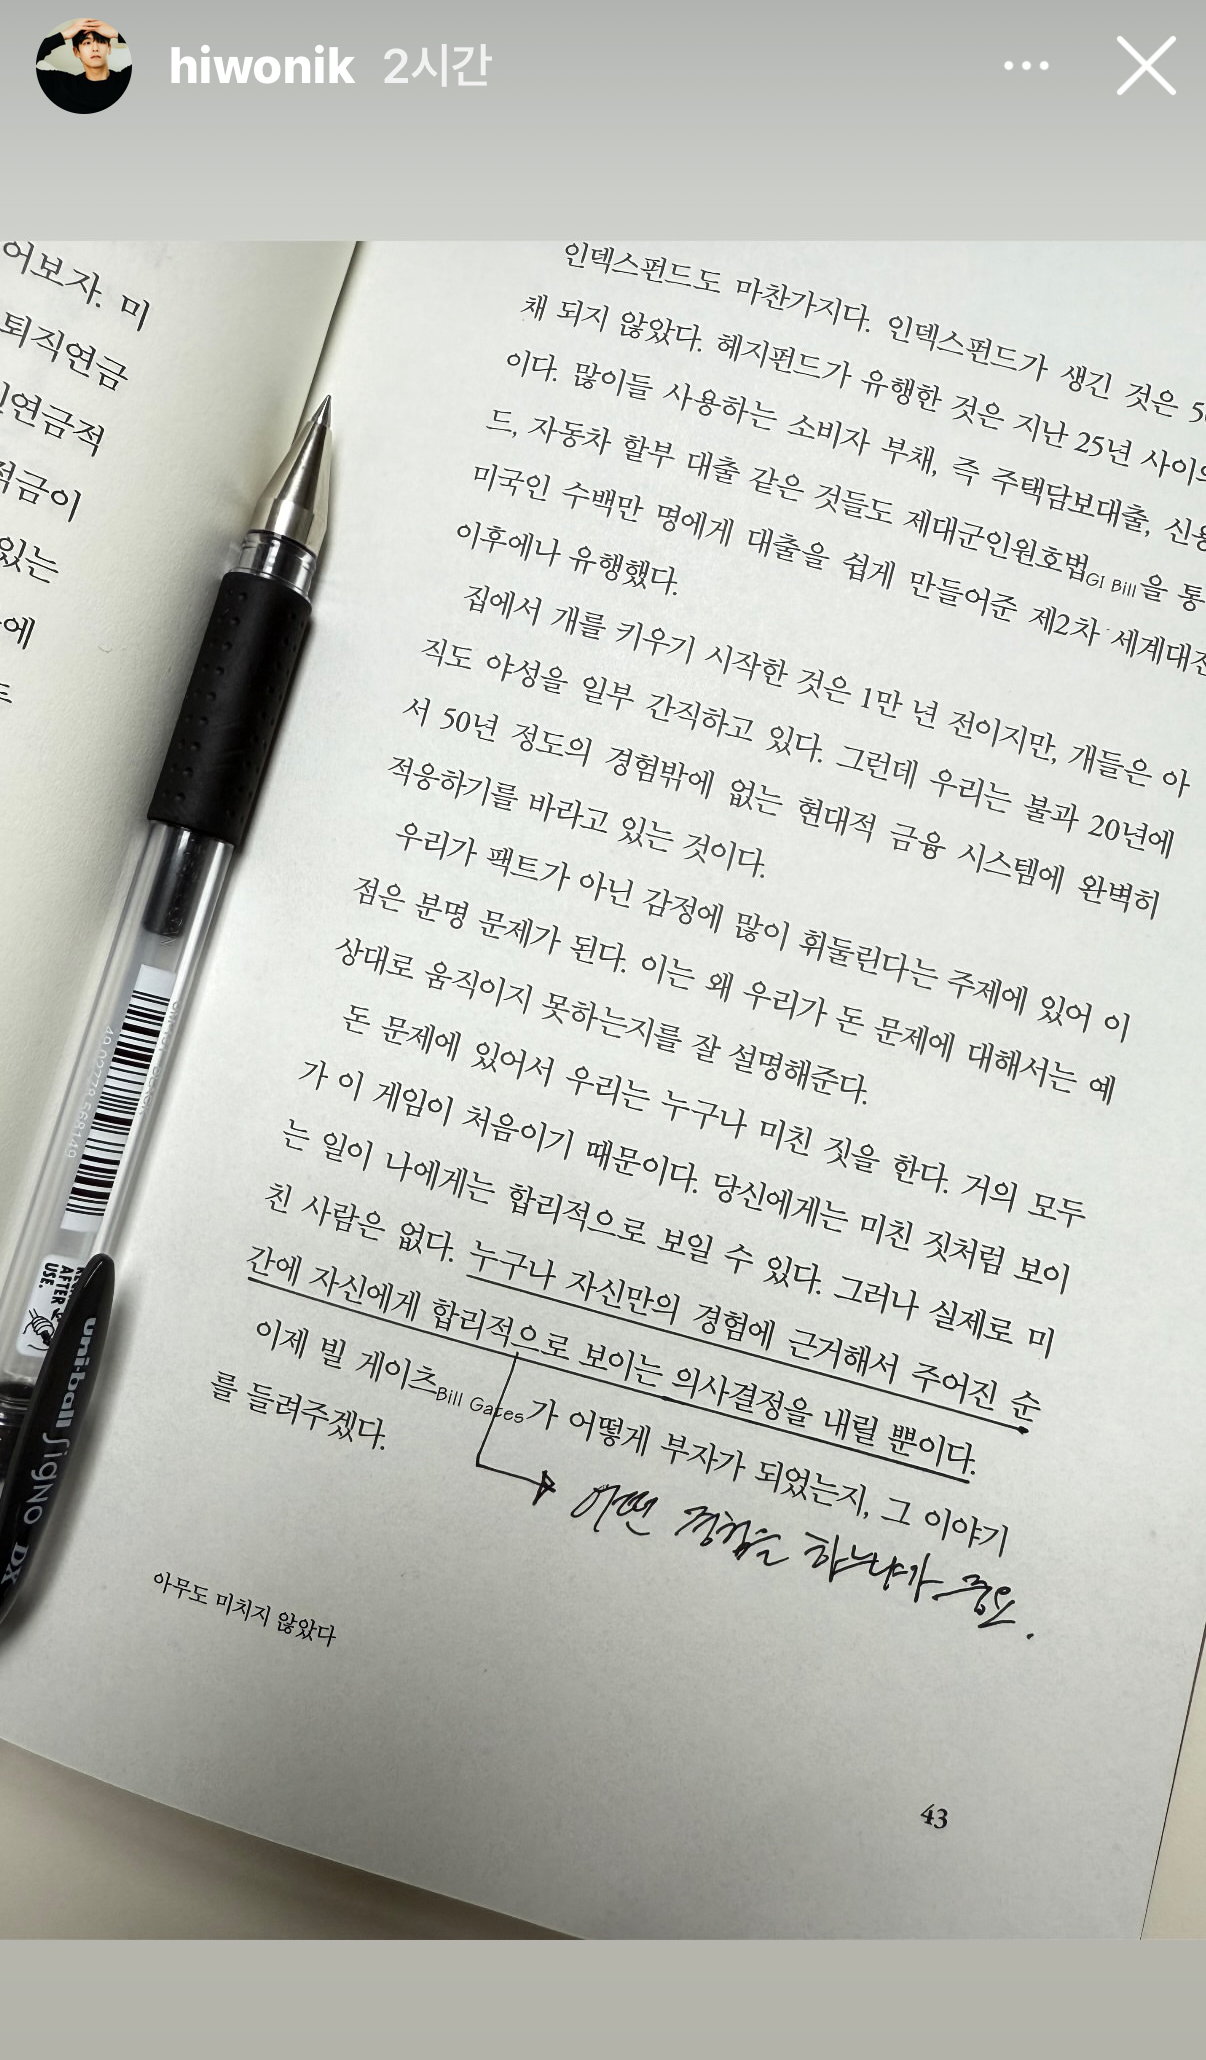 hiwonik 2시간
어보자. 미
퇴직연금
연금적
적금이
있는
에
인덱스펀드도 마찬가지다. 인덱스펀드가 생긴 것은
채 되지 않았다. 헤지펀드가 유행한 것은 지난 25년 사이
이다. 많이들 사용하는 소비자 부채, 즉 주택담보대출, 신용
드, 자동차 할부 대출 같은 것들도 제대군인원호법GI Bill을 통
미국인 수백만 명에게 대출을 쉽게 만들어준 제2차 세계대전
이후에나 유행했다.
집에서 개를 키우기 시작한 것은 1만 년 전이지만, 개들은 아
직도 야성을 일부 간직하고 있다. 그런데 우리는 불과 20년에
서 50년 정도의 경험밖에 없는 현대적 금융 시스템에 완벽히
적응하기를 바라고 있는 것이다.
우리가 팩트가 아닌 감정에 많이 휘둘린다는 주제에 있어 이
점은 분명 문제가 된다. 이는 왜 우리가 돈 문제에 대해서는 예
상대로 움직이지 못하는지를 잘 설명해준다.
돈 문제에 있어서 우리는 누구나 미친 짓을 한다. 거의 모두
가 이 게임이 처음이기 때문이다. 당신에게는 미친 짓처럼 보이
는 일이 나에게는 합리적으로 보일 수 있다. 그러나 실제로 미
친 사람은 없다. 누구나 자신만의 경험에 근거해서 주어진 순
간에 자신에게 합리적으로 보이는 의사결정을 내릴 뿐이다.
이제 빌 게이츠Bill Gates가 어떻게 부자가 되었는지, 그 이야기
를 들려주겠다.
어떤 경험을 하느냐가 중요.
아무도 미치지 않았다
43
AFTER
USE.
uni-ball SIGNO DX